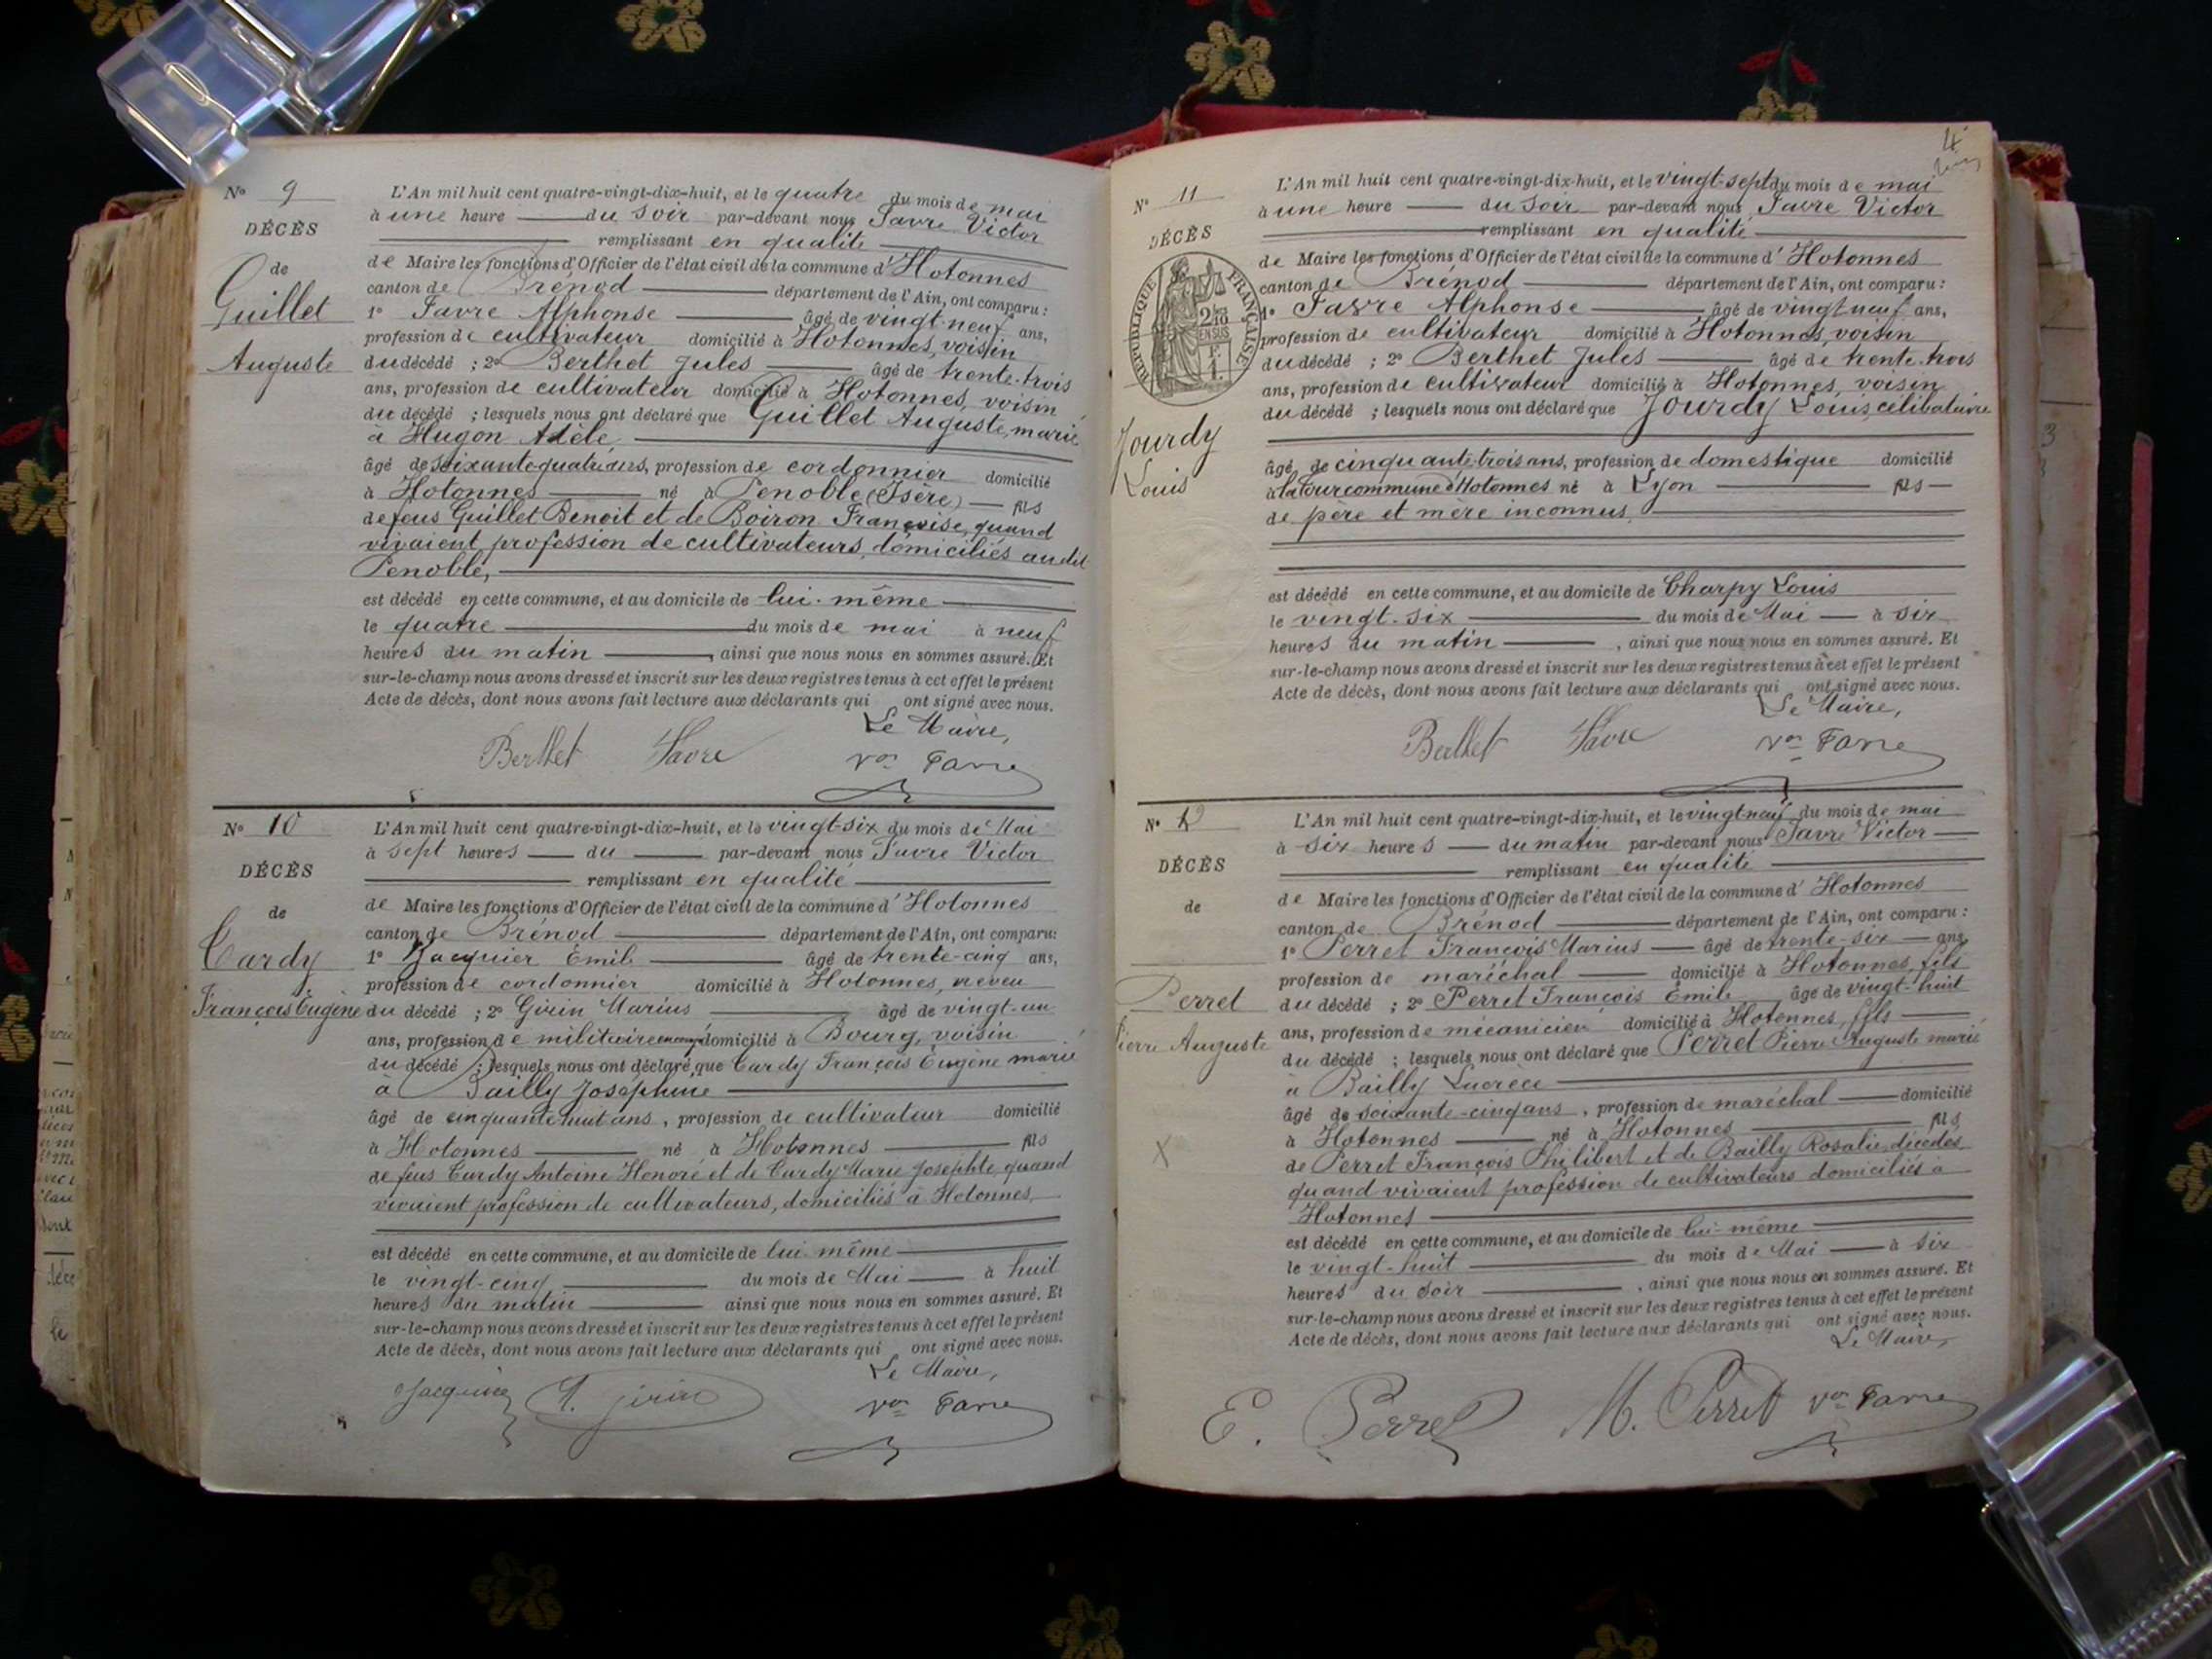 N° 9
DÉCÈS
de
Guillet
Auguste
L'An mil huit cent quatre-vingt-dix-huit, et le quatre du mois de mai
à une heure du soir par-devant nous Favre Victor
remplissant en qualité
de Maire les fonctions d'Officier de l'état civil de la commune d'Hotonnes
canton de Brénod département de l'Ain, ont comparu :
1° Favre Alphonse âgé de vingt-neuf ans,
profession de cultivateur domicilié à Hotonnes, voisin
du décédé ; 2° Berthet Jules âgé de trente-trois
ans, profession de cultivateur domicilié à Hotonnes, voisin
du décédé ; lesquels nous ont déclaré que Guillet Auguste, marié
à Hugon Adèle
âgé de soixante quatre ans, profession de cordonnier domicilié
à Hotonnes né à Penoble (Isère) fils
de feus Guillet Benoit et de Boiron Françoise, quand
vivaient profession de cultivateurs, domiciliés au dit
Penoble,
est décédé en cette commune, et au domicile de lui-même
le quatre du mois de mai à neuf
heures du matin , ainsi que nous nous en sommes assuré. Et
sur-le-champ nous avons dressé et inscrit sur les deux registres tenus à cet effet le présent
Acte de décès, dont nous avons fait lecture aux déclarants qui ont signé avec nous.
Le Maire,
Berthet Favre Vor Favre
N° 10
DÉCÈS
de
Cardy
François Eugène
L'An mil huit cent quatre-vingt-dix-huit, et le vingt-six du mois de Mai
à sept heures du par-devant nous Favre Victor
remplissant en qualité
de Maire les fonctions d'Officier de l'état civil de la commune d'Hotonnes
canton de Brénod département de l'Ain, ont comparu :
1° Jacquier Emile âgé de trente-cinq ans,
profession de cordonnier domicilié à Hotonnes, neveu
du décédé ; 2° Girin Marius âgé de vingt-un
ans, profession de militaire domicilié à Bourg, voisin
du décédé ; lesquels nous ont déclaré que Cardy François Eugène marié
à Bailly Joséphine
âgé de cinquante huit ans, profession de cultivateur domicilié
à Hotonnes né à Hotonnes fils
de feus Cardy Antoine Honoré et de Cardy Marie Josephte, quand
vivaient profession de cultivateurs, domiciliés à Hotonnes,
est décédé en cette commune, et au domicile de lui-même
le vingt-cinq du mois de Mai à huit
heures du matin ainsi que nous nous en sommes assuré. Et
sur-le-champ nous avons dressé et inscrit sur les deux registres tenus à cet effet le présent
Acte de décès, dont nous avons fait lecture aux déclarants qui ont signé avec nous.
Le Maire,
Jacquier girin Vor Favre
4
N° 11
DÉCÈS
RÉPUBLIQUE FRANÇAISE
2/10 EN SUS
Jourdy
Louis
L'An mil huit cent quatre-vingt-dix-huit, et le vingt-sept du mois de mai
à une heure du soir par-devant nous Favre Victor
remplissant en qualité
de Maire les fonctions d'Officier de l'état civil de la commune d'Hotonnes
canton de Brénod département de l'Ain, ont comparu :
1° Favre Alphonse âgé de vingt neuf ans,
profession de cultivateur domicilié à Hotonnes, voisin
du décédé ; 2° Berthet Jules âgé de trente-trois
ans, profession de cultivateur domicilié à Hotonnes, voisin
du décédé ; lesquels nous ont déclaré que Jourdy Louis, célibataire
âgé de cinquante trois ans, profession de domestique domicilié
à la tour commune d'Hotonnes né à Lyon fils
de père et mère inconnus,
est décédé en cette commune, et au domicile de Charpy Louis
le vingt-six du mois de Mai à six
heures du matin , ainsi que nous nous en sommes assuré. Et
sur-le-champ nous avons dressé et inscrit sur les deux registres tenus à cet effet le présent
Acte de décès, dont nous avons fait lecture aux déclarants qui ont signé avec nous.
Le Maire,
Berthet Favre Vor Favre
N° 12
DÉCÈS
de
Perret
Pierre Auguste
X
L'An mil huit cent quatre-vingt-dix-huit, et le vingt neuf du mois de mai
à six heures du matin par-devant nous Favre Victor
remplissant en qualité
de Maire les fonctions d'Officier de l'état civil de la commune d'Hotonnes
canton de Brénod département de l'Ain, ont comparu :
1° Perret François Marius âgé de trente-six ans,
profession de maréchal domicilié à Hotonnes, fils
du décédé ; 2° Perret François Emile âgé de vingt-huit
ans, profession de mécanicien domicilié à Hotonnes, fils
du décédé ; lesquels nous ont déclaré que Perret Pierre Auguste marié
à Bailly Lucrèce
âgé de soixante-cinq ans, profession de maréchal domicilié
à Hotonnes né à Hotonnes fils
de Perret François Philibert et de Bailly Rosalie, décédés
quand vivaient profession de cultivateurs domiciliés à
Hotonnes
est décédé en cette commune, et au domicile de lui-même
le vingt-huit du mois de Mai à six
heures du soir , ainsi que nous nous en sommes assuré. Et
sur-le-champ nous avons dressé et inscrit sur les deux registres tenus à cet effet le présent
Acte de décès, dont nous avons fait lecture aux déclarants qui ont signé avec nous.
Le Maire,
E. Perret M. Perret Vor Favre